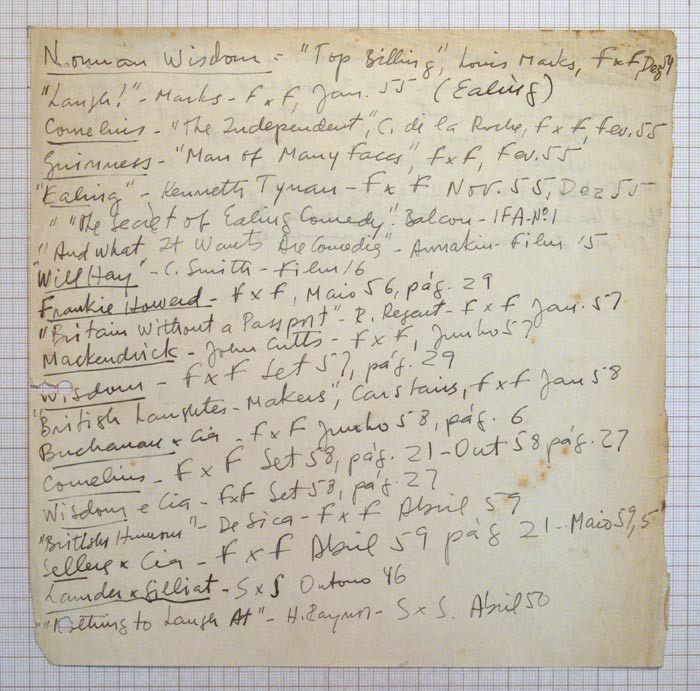 Norman Wisdom - "Top Billing", Louis Marks, FxF, Dez 54
"Laugh!" - Marks - FxF, Jan. 55 (Ealing)
Cornelius - "The Independent", C. de la Roche, FxF, Fev. 55
Guinness - "Man of Many Faces", FxF, Fev. 55
"Ealing" - Kenneth Tynan - FxF Nov. 55, Dez 55
" "The Secret of Ealing Comedy". Balcon - IFA - Nº1
"And what It Wants Are Comedies" - Annakin - Film 15
"Will Hay" - C. Smith - Film 16
Frankie Howerd - FxF, Maio 56, pág. 29
"Britain Without a Passport" - R. Regent - FxF Jan. 57
Mackendrick - John Cutts - FxF, Junho 57
Wisdom - FxF Set 57, pág. 29
"British Laughter-Makers", Carstairs, FxF Jan 58
Buchanan x Cia - FxF Junho 58, pág. 6
Cornelius - FxF Set 58, pág. 21 - Out 58 pág. 27
Wisdom e Cia - FxF Set 58, pág. 27
"British Humour" - De Sica - FxF Abril 59
Sellers x Cia - FxF Abril 59 pág 21 - Maio 59, 5
Launder x Gilliat - SxS Outono 46
"Nothing to Laugh At" - H. Raynor - SxS. Abril 50